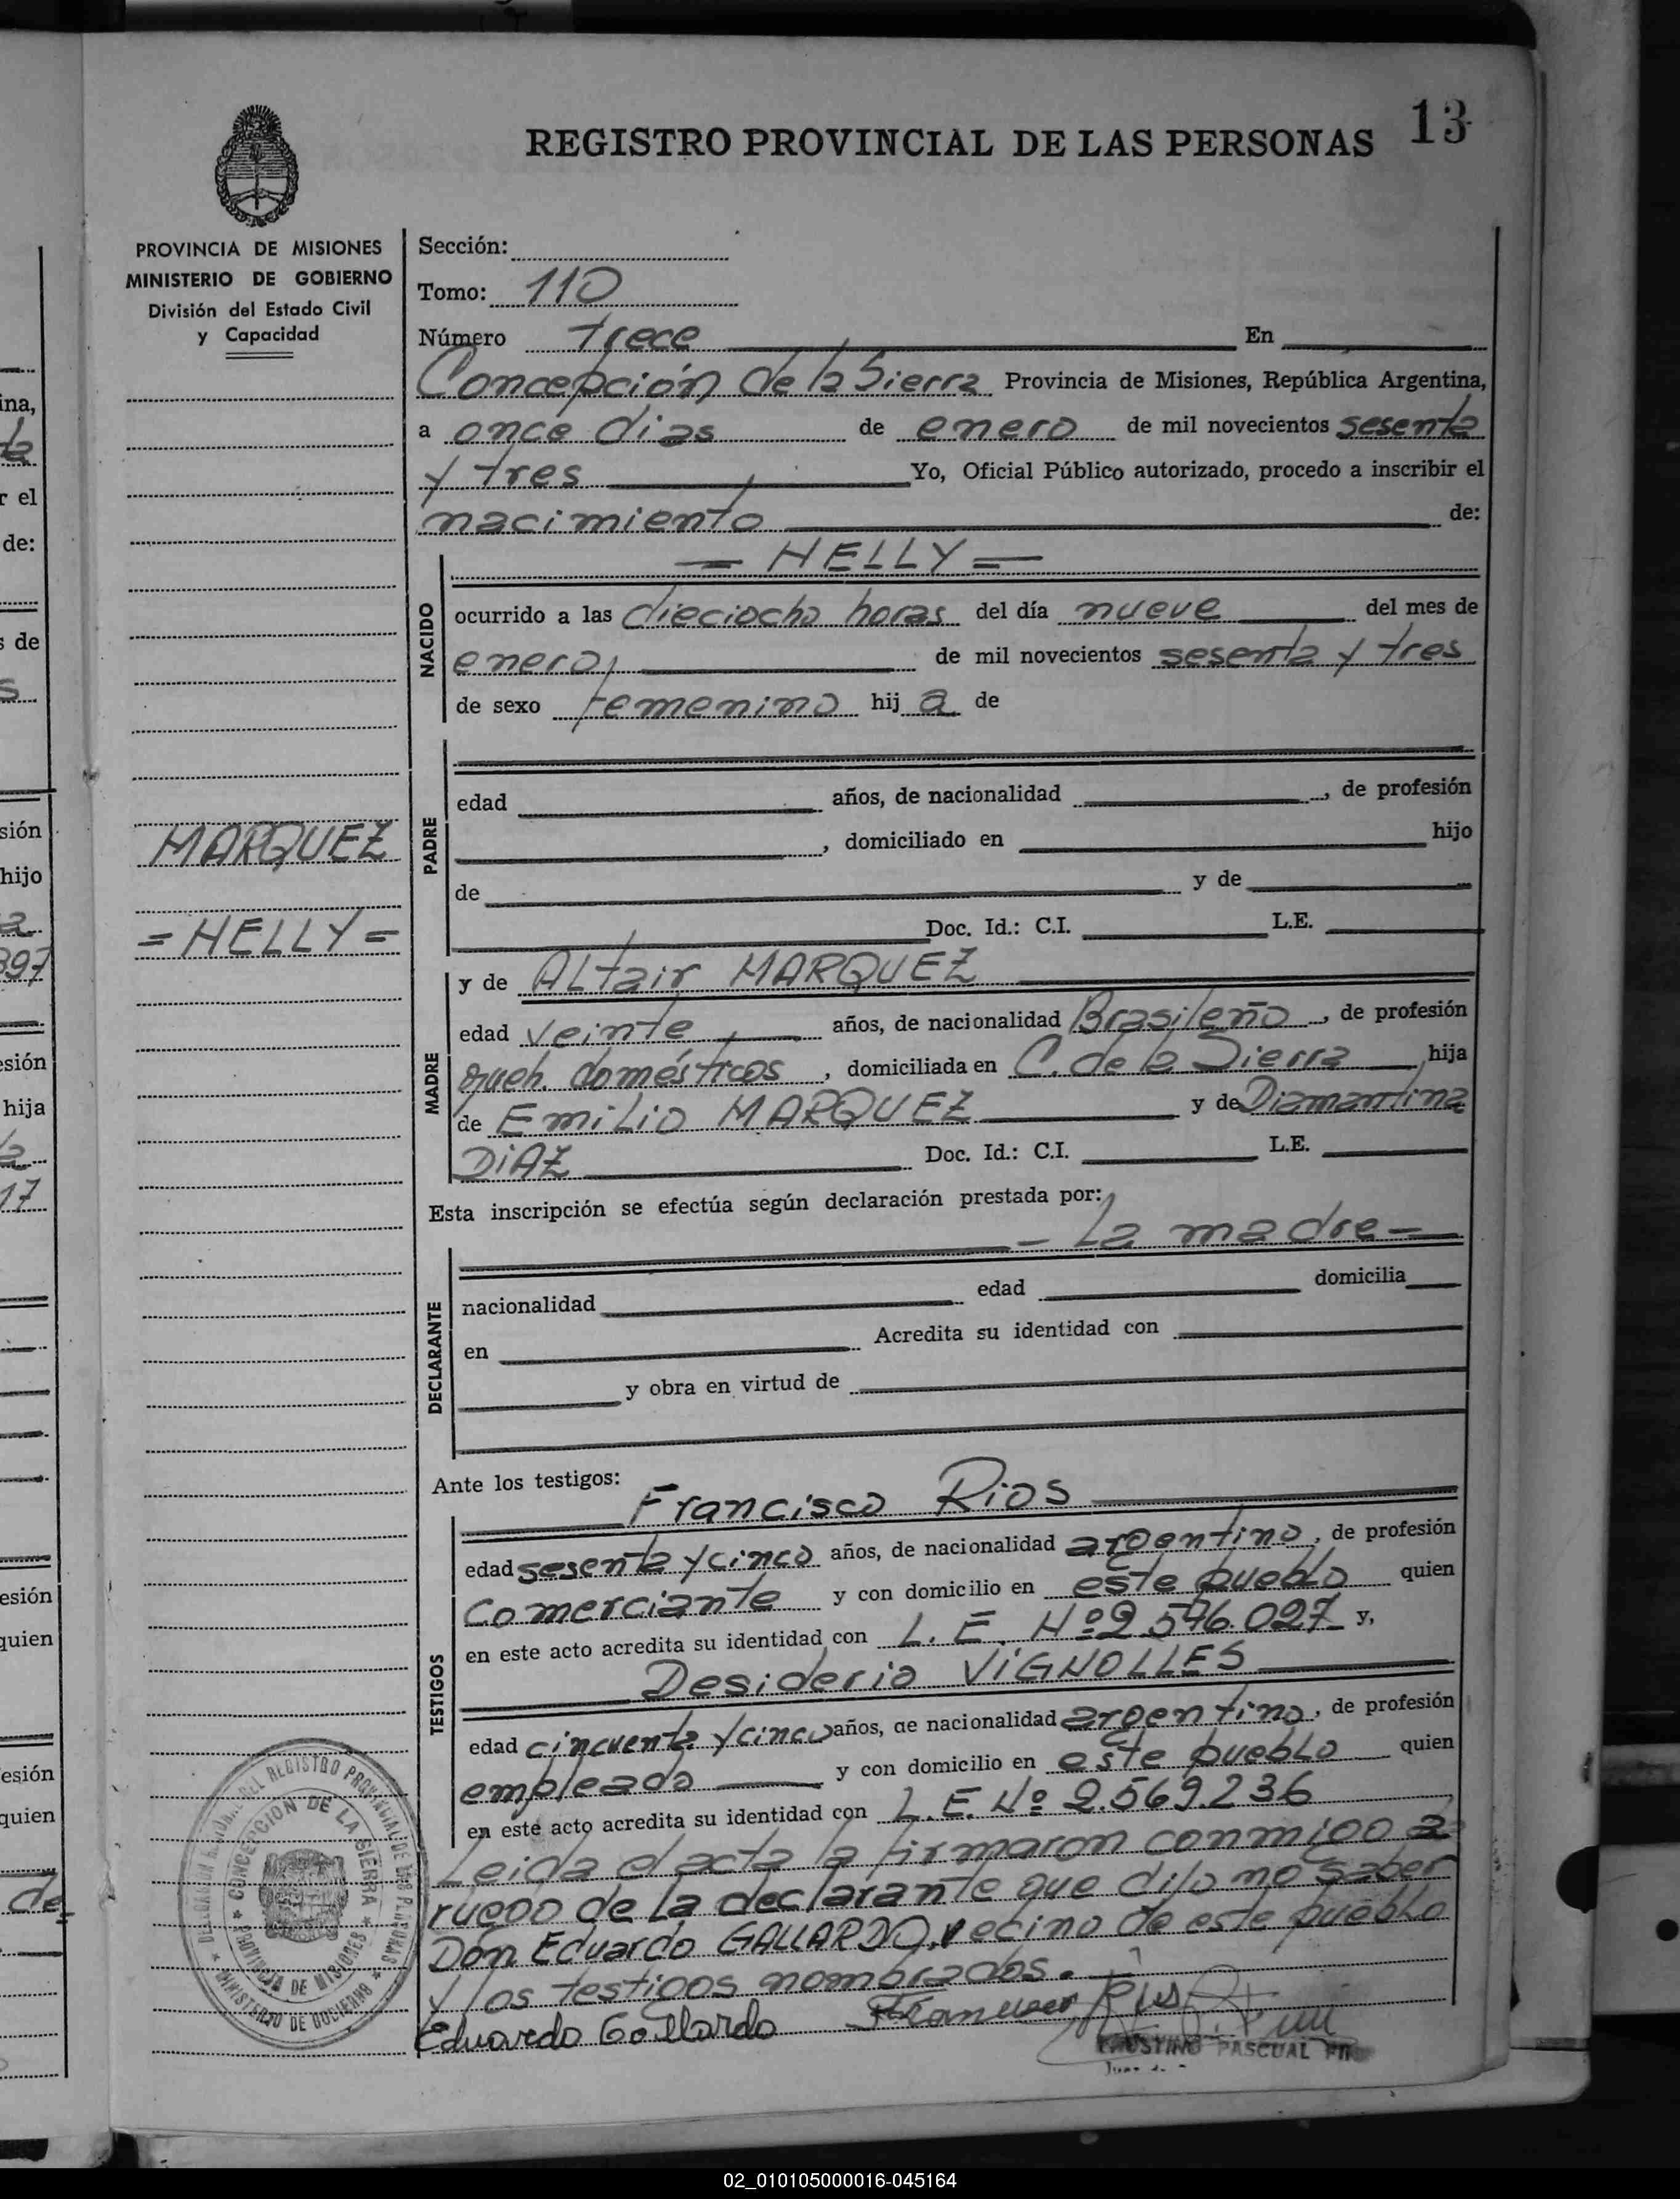 REGISTRO PROVINCIAL DE LAS PERSONAS 13
PROVINCIA DE MISIONES
MINISTERIO DE GOBIERNO
División del Estado Civil
y Capacidad
MARQUEZ
= HELLY =
Sección:
Tomo: 110
Número trece En
Concepción de la Sierra Provincia de Misiones, República Argentina,
a once dias de enero de mil novecientos sesenta
y tres Yo, Oficial Público autorizado, procedo a inscribir el
nacimiento de:
= HELLY =
NACIDO
ocurrido a las dieciocho horas del día nueve del mes de
enero, de mil novecientos sesenta y tres
de sexo femenino hij a de
PADRE
edad años, de nacionalidad , de profesión
, domiciliado en hijo
de y de
Doc. Id.: C.I. L.E.
MADRE
y de Altair MARQUEZ
edad veinte años, de nacionalidad Brasileño, de profesión
queh. domésticos, domiciliada en C. de la Sierra hija
de Emilio MARQUEZ y de Diamantina
DiAZ Doc. Id.: C.I. L.E.
Esta inscripción se efectúa según declaración prestada por:
- La madre -
DECLARANTE
nacionalidad edad domicilia
en Acredita su identidad con
y obra en virtud de
Ante los testigos:
Francisco Rios
TESTIGOS
edad sesenta y cinco años, de nacionalidad argentino, de profesión
comerciante y con domicilio en este pueblo quien
en este acto acredita su identidad con L. E. Nº 2.546.027 y,
Desiderio ViGNOLLES
edad cincuenta y cinco años, de nacionalidad argentino, de profesión
empleado y con domicilio en este pueblo quien
en este acto acredita su identidad con L. E. Nº 2.569.236
Leida el acta la firmaron conmigo a
ruego de la declarante que dijo no saber
Don Eduardo GALLARDO, vecino de este pueblo
y los testigos nombrados.
Eduardo Gallardo Francisco Rios
FAUSTINO PASCUAL
REGISTRO PROVINCIAL DE LAS PERSONAS
MINISTERIO DE GOBIERNO
CONCEPCION DE LA SIERRA
PROVINCIA DE MISIONES
ina,
ta
r el
de:
s de
s
sión
hijo
a
397
esión
hija
17
esión
quien
esión
quien
de
02_010105000016-045164